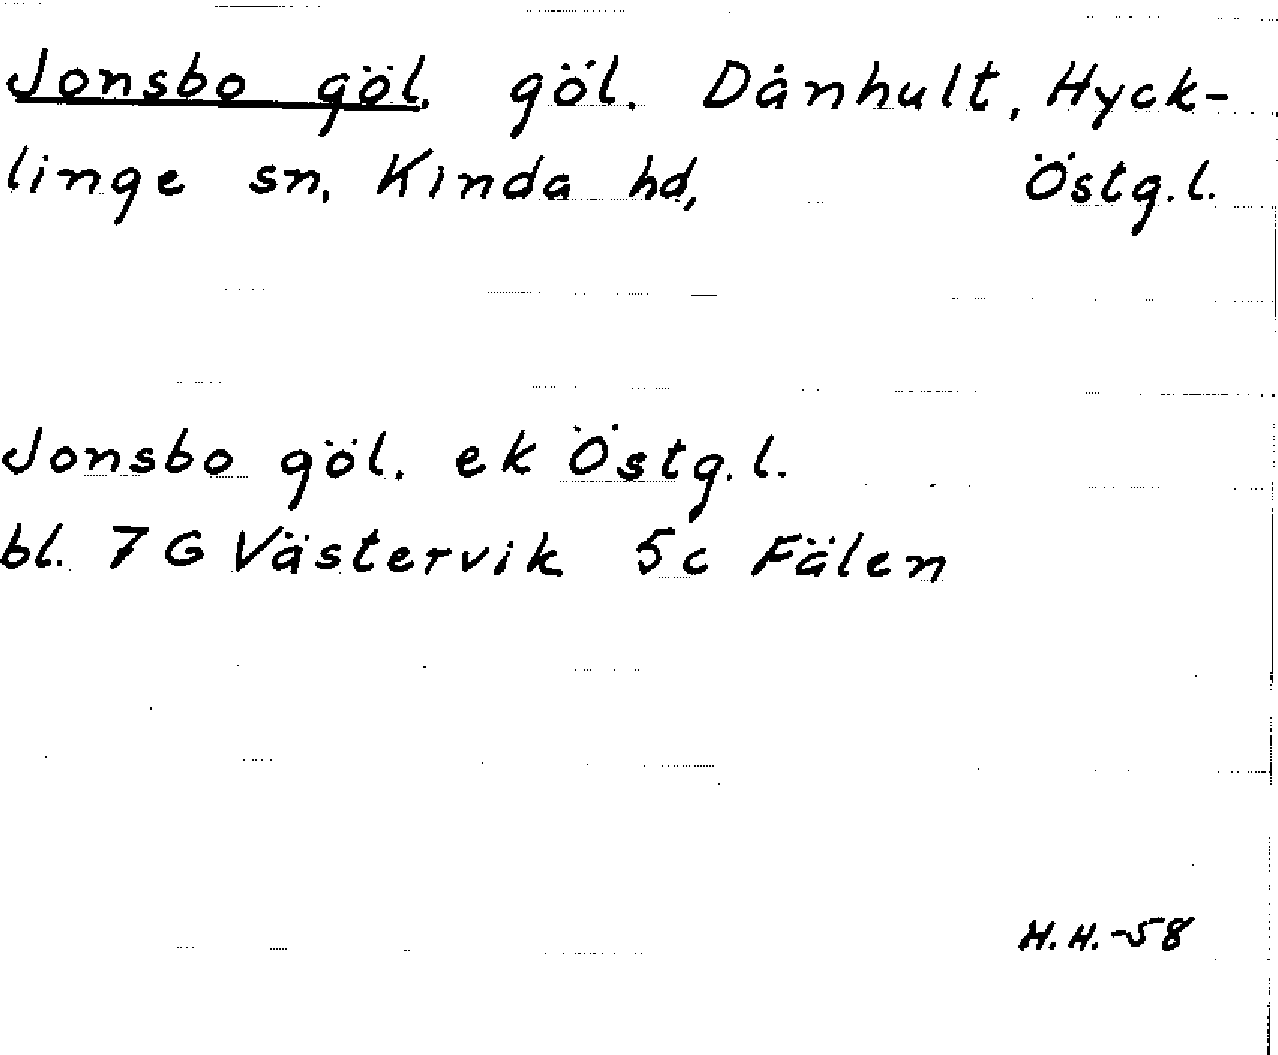 Jonsbo göl, göl. Dånhult, Hyck-
linge sn, Kinda hd, Östg.l.
Jonsbo göl. ek Östg.l.
bl. 7 G Västervik 5c Fälen
H.H.-58